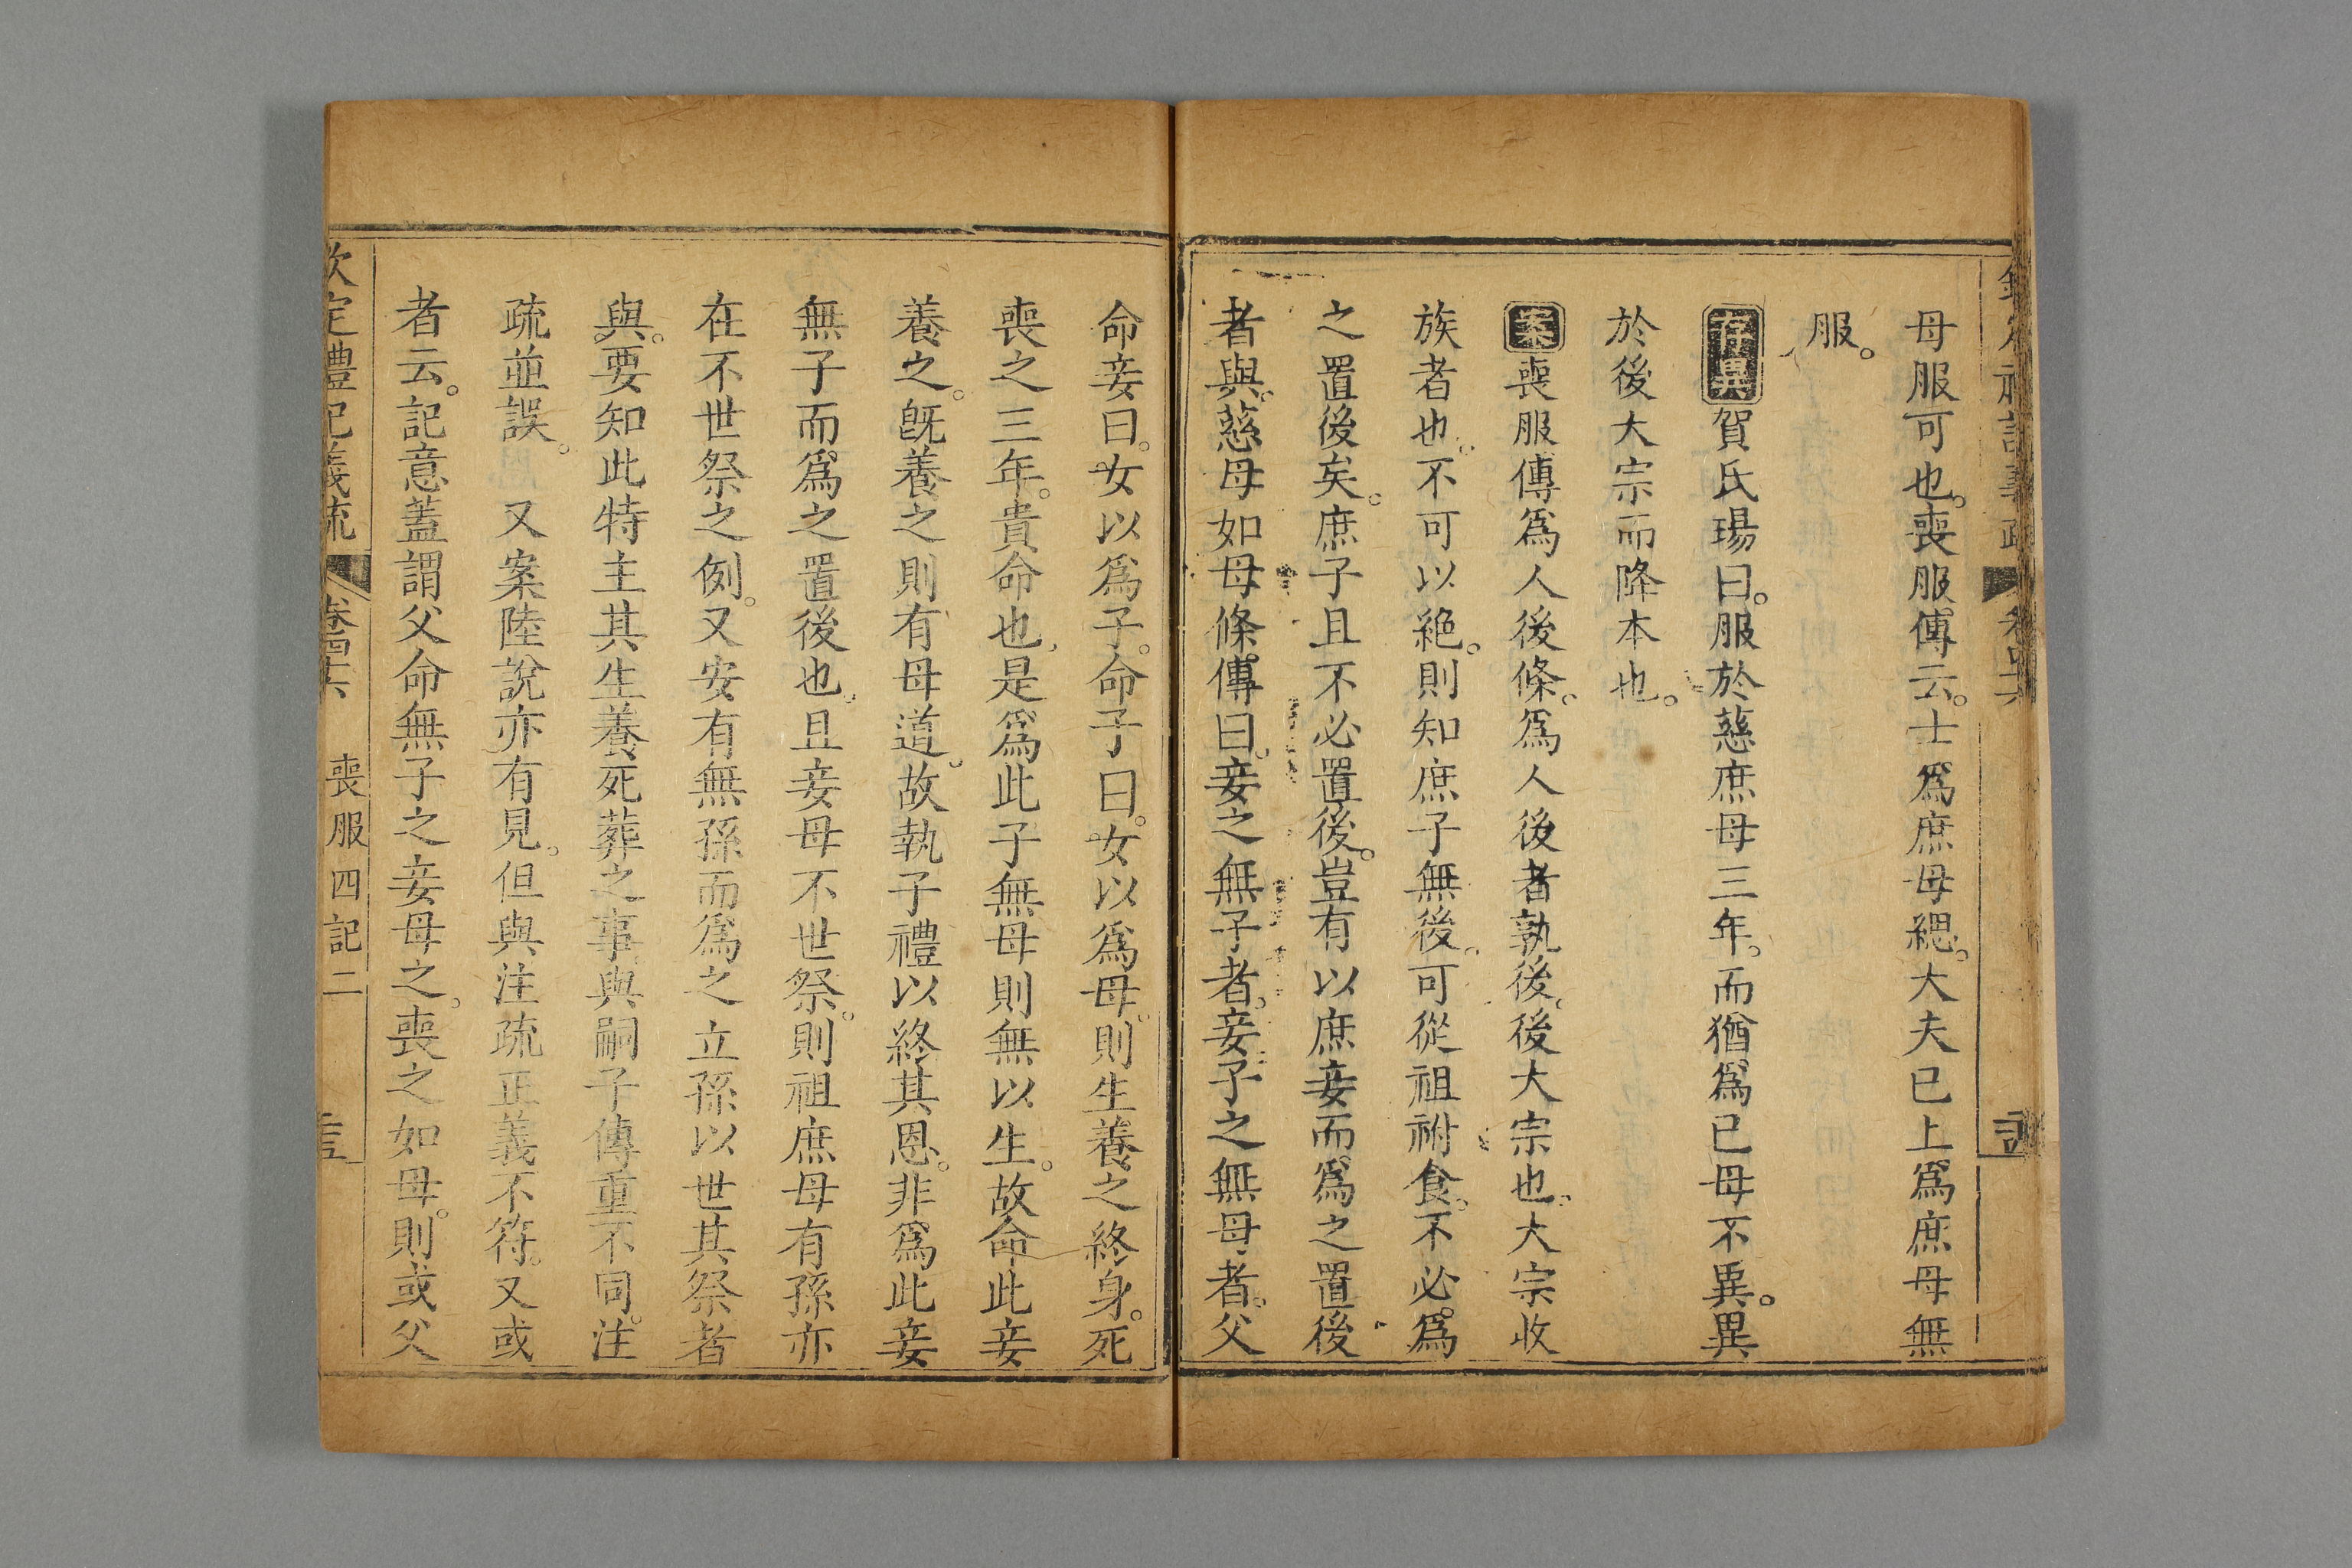 母服可也。喪服傳云。士爲庶母緦。大夫已上爲庶母無
服。
存異賀氏瑒曰。服於慈庶母三年。而猶爲已母不異。異
於後大宗而降本也。
案喪服傳爲人後條。爲人後者孰後。後大宗也。大宗收
族者也。不可以絕。則知庶子無後。可從祖祔食。不必爲
之置後矣。庶子且不必置後。豈有以庶妾而爲之置後
者與。慈母如母條。傳曰。妾之無子者。妾子之無母者。父
命妾曰。女以爲子。命子曰。女以爲母。則生養之終身。死
喪之三年。貴命也。是爲此子無母則無以生。故命此妾
養之。旣養之則有母道。故執子禮以終其恩。非爲此妾
無子而爲之置後也。且妾母不世祭。則祖庶母有孫亦
在不世祭之例。又安有無孫而爲之立孫以世其祭者
與。要知此特主其生養死葬之事與嗣子傳重不同。注
疏並誤。　又案陸說亦有見。但與注疏正義不符。又或
者云。記意蓋謂父命無子之妾母之。喪之如母。則或父
欽定禮記義疏　卷四十六　喪服四記二